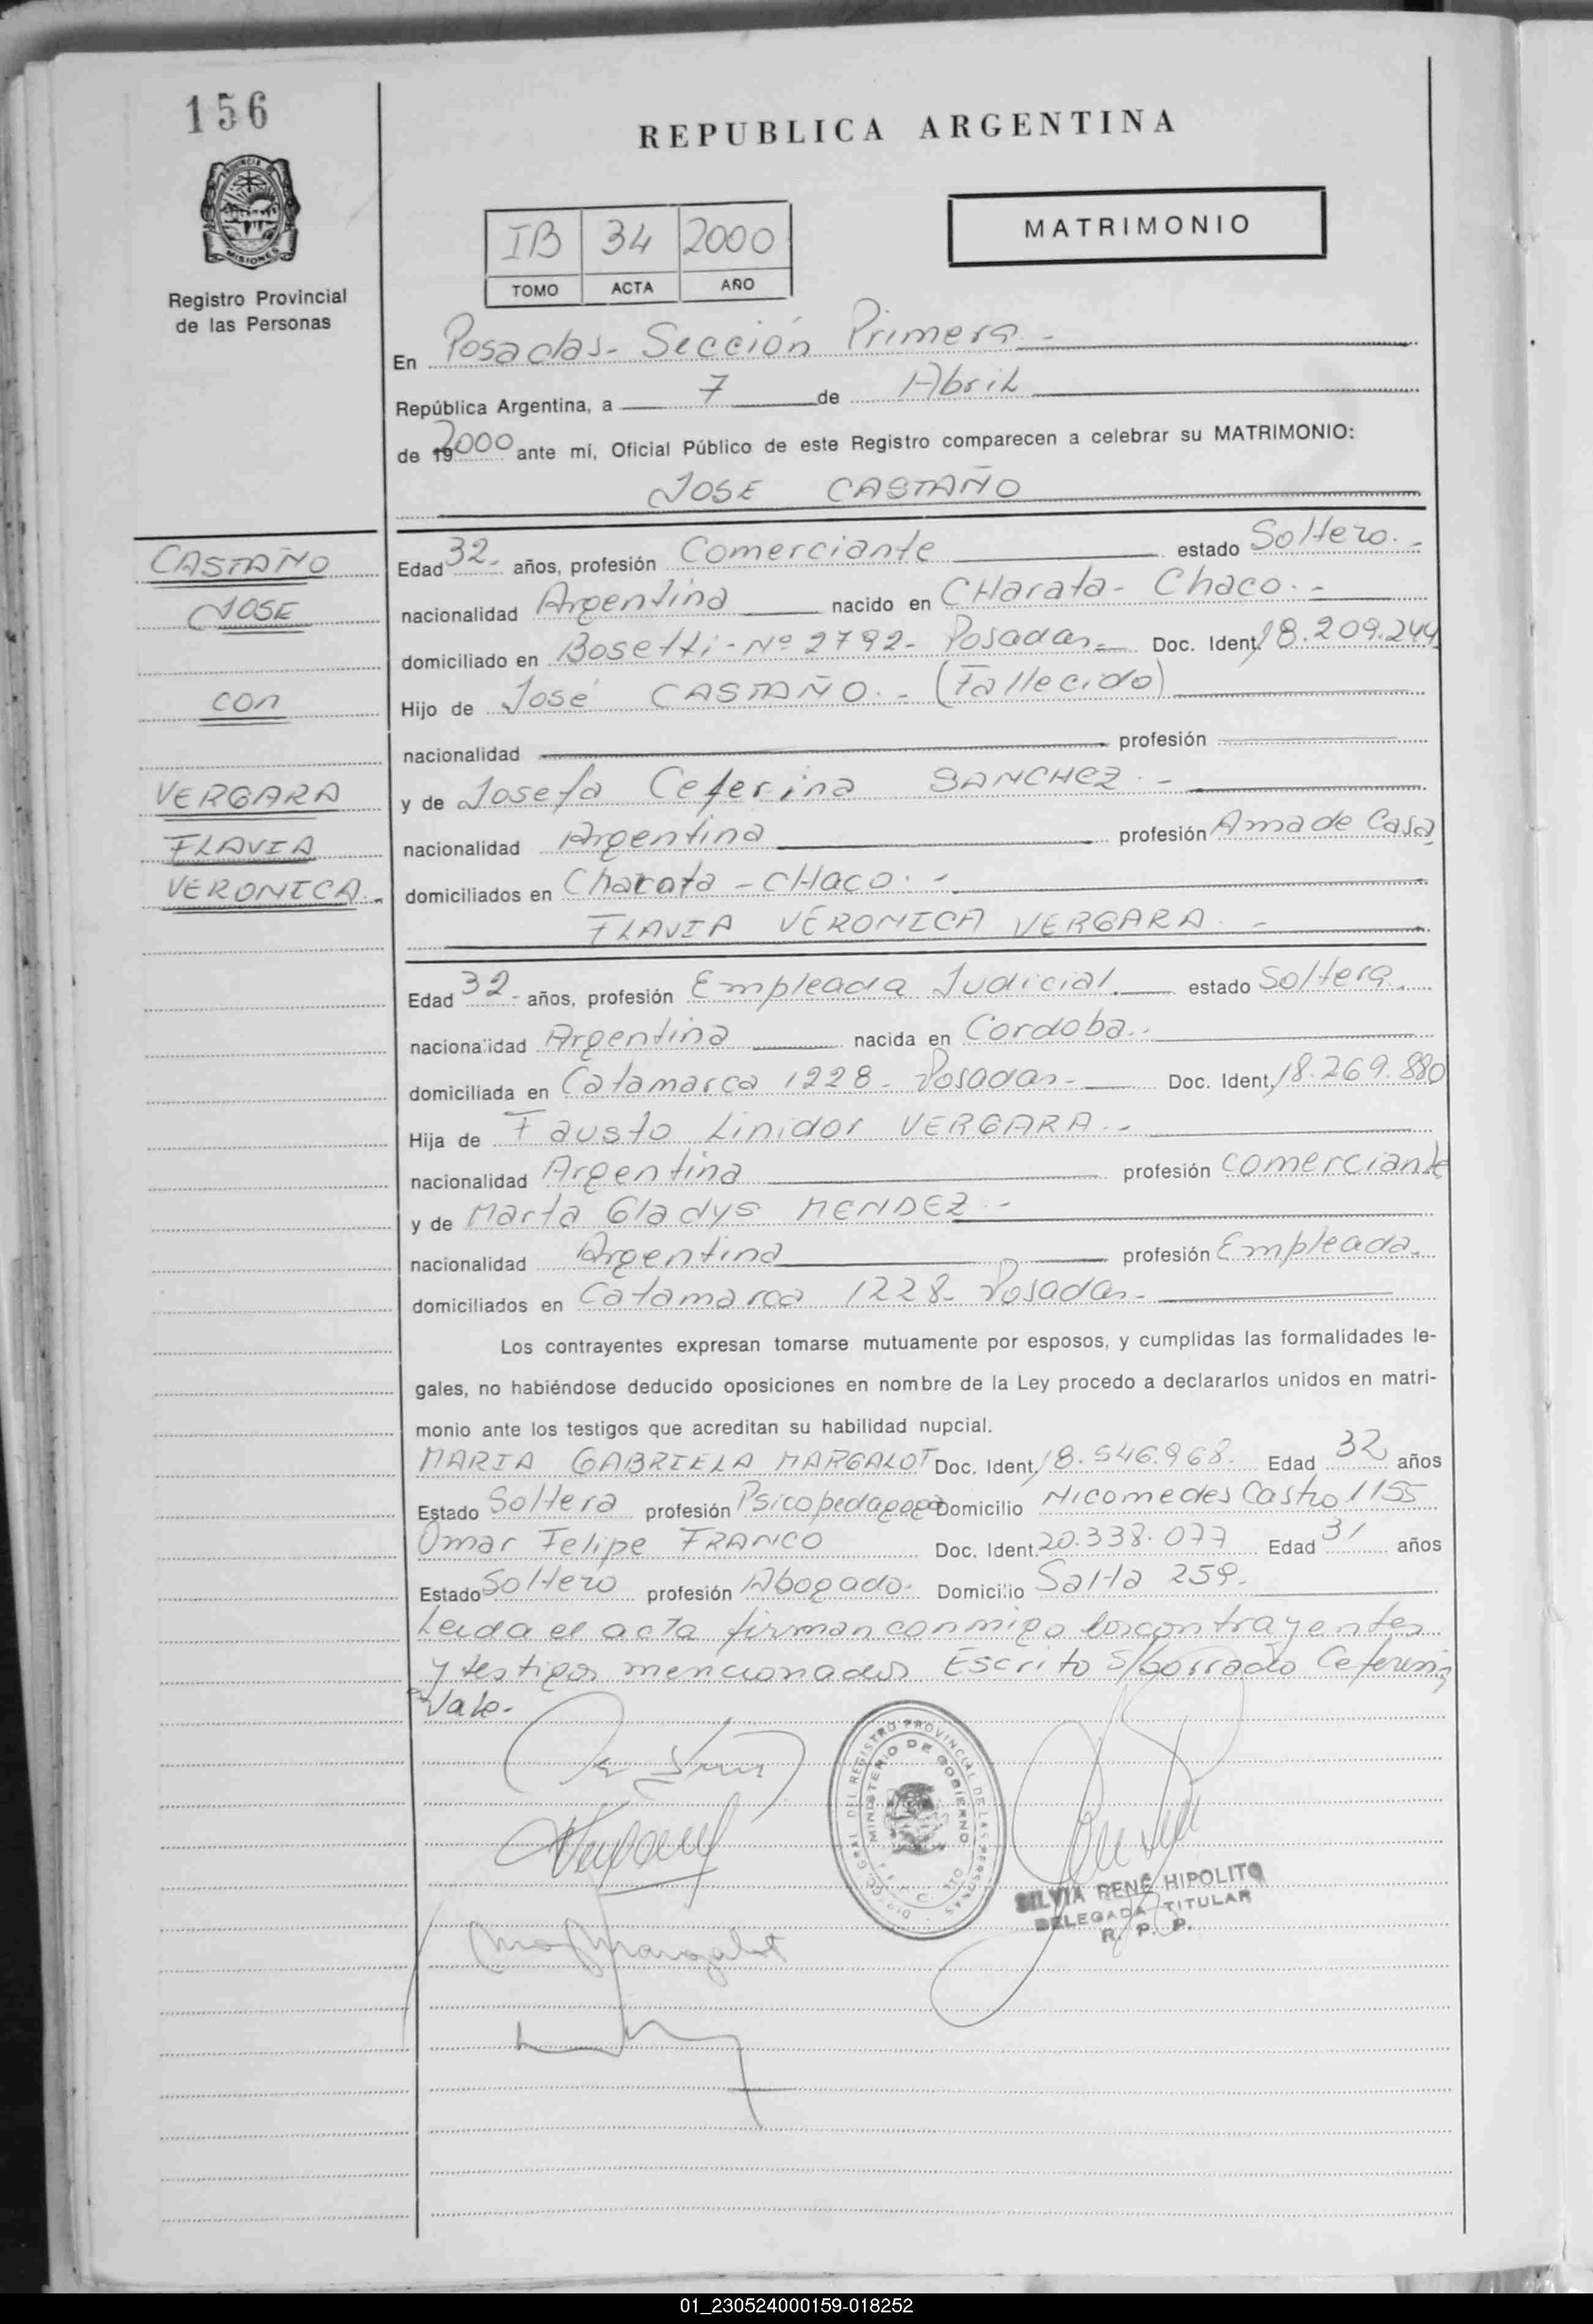 156
REPUBLICA ARGENTINA
PROVINCIA DE MISIONES
Registro Provincial
de las Personas
IB 34 2000
TOMO ACTA AÑO
MATRIMONIO
En Posadas- Sección Primera.-
República Argentina, a 7 de Abril
de 19 2000 ante mí, Oficial Público de este Registro comparecen a celebrar su MATRIMONIO:
JOSE CASTAÑO
CASTAÑO
JOSE
con
VERGARA
FLAVIA
VERONICA.-
Edad 32- años, profesión Comerciante estado Soltero.-
nacionalidad Argentina nacido en CHarata- Chaco.-
domiciliado en Bosetti-Nº 2792- Posadas- Doc. Ident. 18.209.244
Hijo de José CASTAÑO.- (Fallecido)
nacionalidad profesión
y de Josefa Ceferina SANCHEZ.-
nacionalidad Argentina profesión Ama de Casa
domiciliados en Charata - CHaco.-
FLAVIA VERONICA VERGARA.-
Edad 32- años, profesión Empleada Judicial. estado Soltera.
nacionalidad Argentina nacida en Cordoba..
domiciliada en Catamarca 1228- Posadas- Doc. Ident. 18.269.880
Hija de Fausto Linidor VERGARA.-
nacionalidad Argentina profesión comerciante
y de Marta Gladys MENDEZ.-
nacionalidad Argentina profesión Empleada.
domiciliados en Catamarca 1228- Posadas-
Los contrayentes expresan tomarse mutuamente por esposos, y cumplidas las formalidades le-
gales, no habiéndose deducido oposiciones en nombre de la Ley procedo a declararlos unidos en matri-
monio ante los testigos que acreditan su habilidad nupcial.
MARIA GABRIELA MARGALOT Doc. Ident. 18.546.968. Edad 32 años
Estado Soltera profesión Psicopedagoga Domicilio Nicomedes Castro 1155
Omar Felipe FRANCO Doc. Ident. 20.338.077 Edad 31 años
Estado Soltero profesión Abogado. Domicilio Salta 259.
Leida el acta firman conmigo los contrayentes
y testigos mencionados Escrito s/borrado Ceferina
Vale.-
DEL REGISTRO PROVINCIAL DE LAS PERSONAS
MINISTERIO DE GOBIERNO
SILVIA RENÉ HIPOLITO
DELEGADA TITULAR
R. P. P.
Margalot
01_230524000159-018252